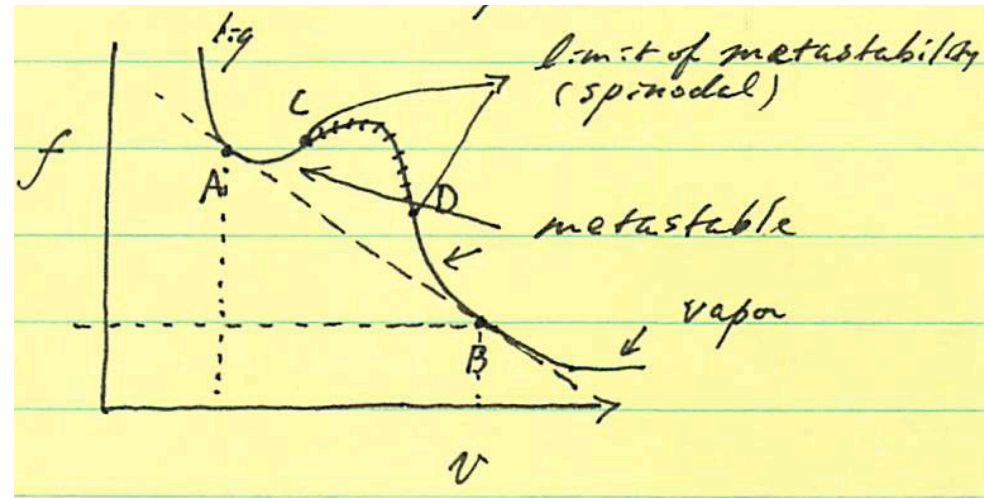 liq
limit of metastability
(spinodal)
C
f
A
D
metastable
vapor
B
v